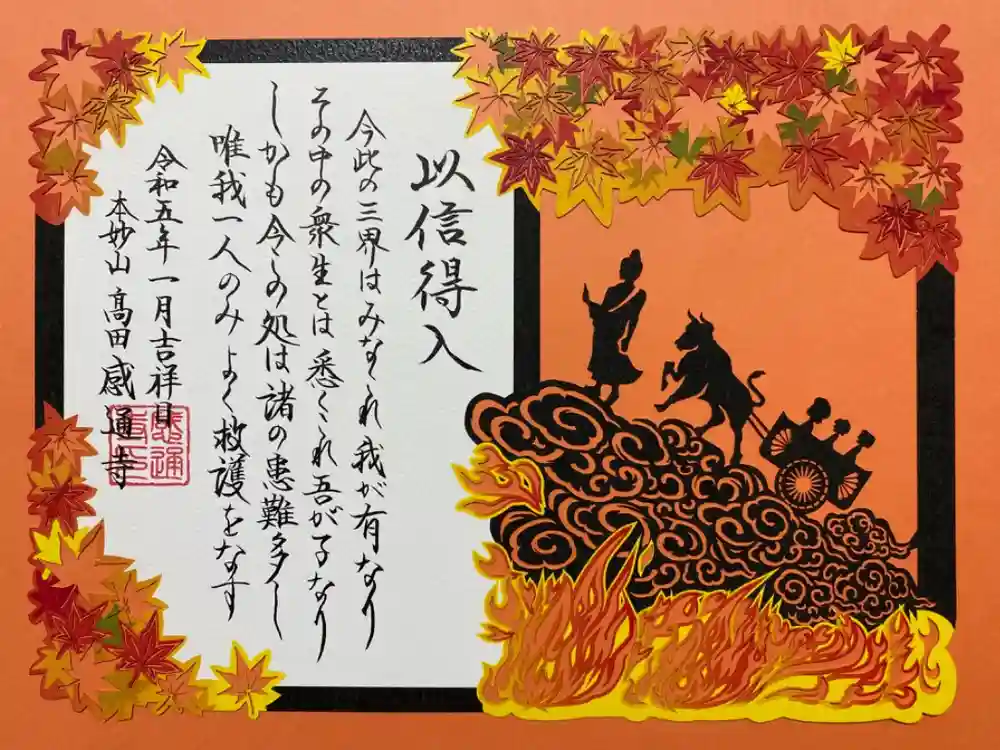 以信得入
今此の三界はみなこれ我が有なり
その中の衆生とは悉くこれ吾が子なり
しかも今この処は諸の患難多し
唯我一人のみよく救護をなす
令和五年一月吉祥日
本妙山 高田感通寺